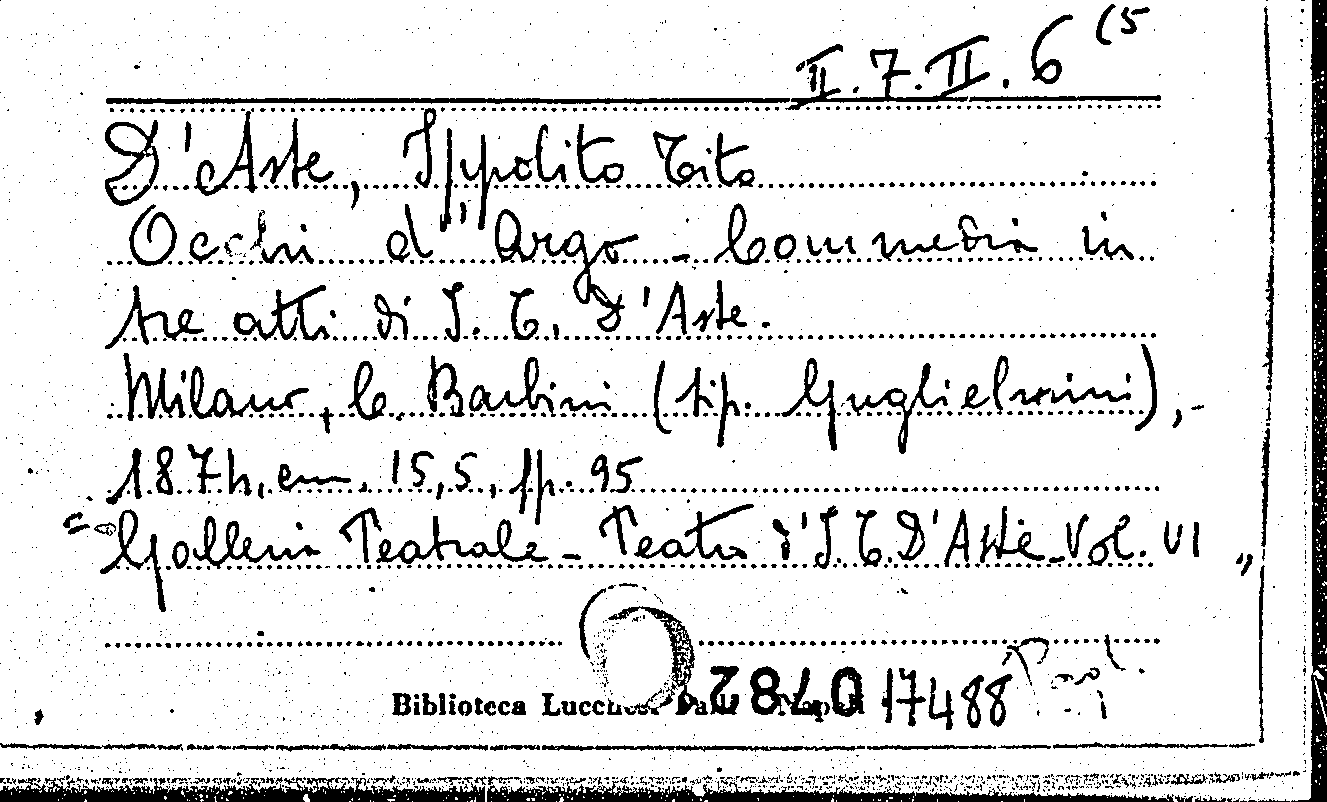 II.7.II.6 (5
D'Aste, Ippolito Tito
Occhi d'Argo - Commedia in
tre atti di I. T. D'Aste.
Milano, C. Barbini (tip. Guglielmini),-
1874, cm. 15,5, pp. 95
"Galleria Teatrale - Teatro d'I. T. D'Aste - Vol. VI"
Biblioteca Lucchesi Palli Napoli 17488